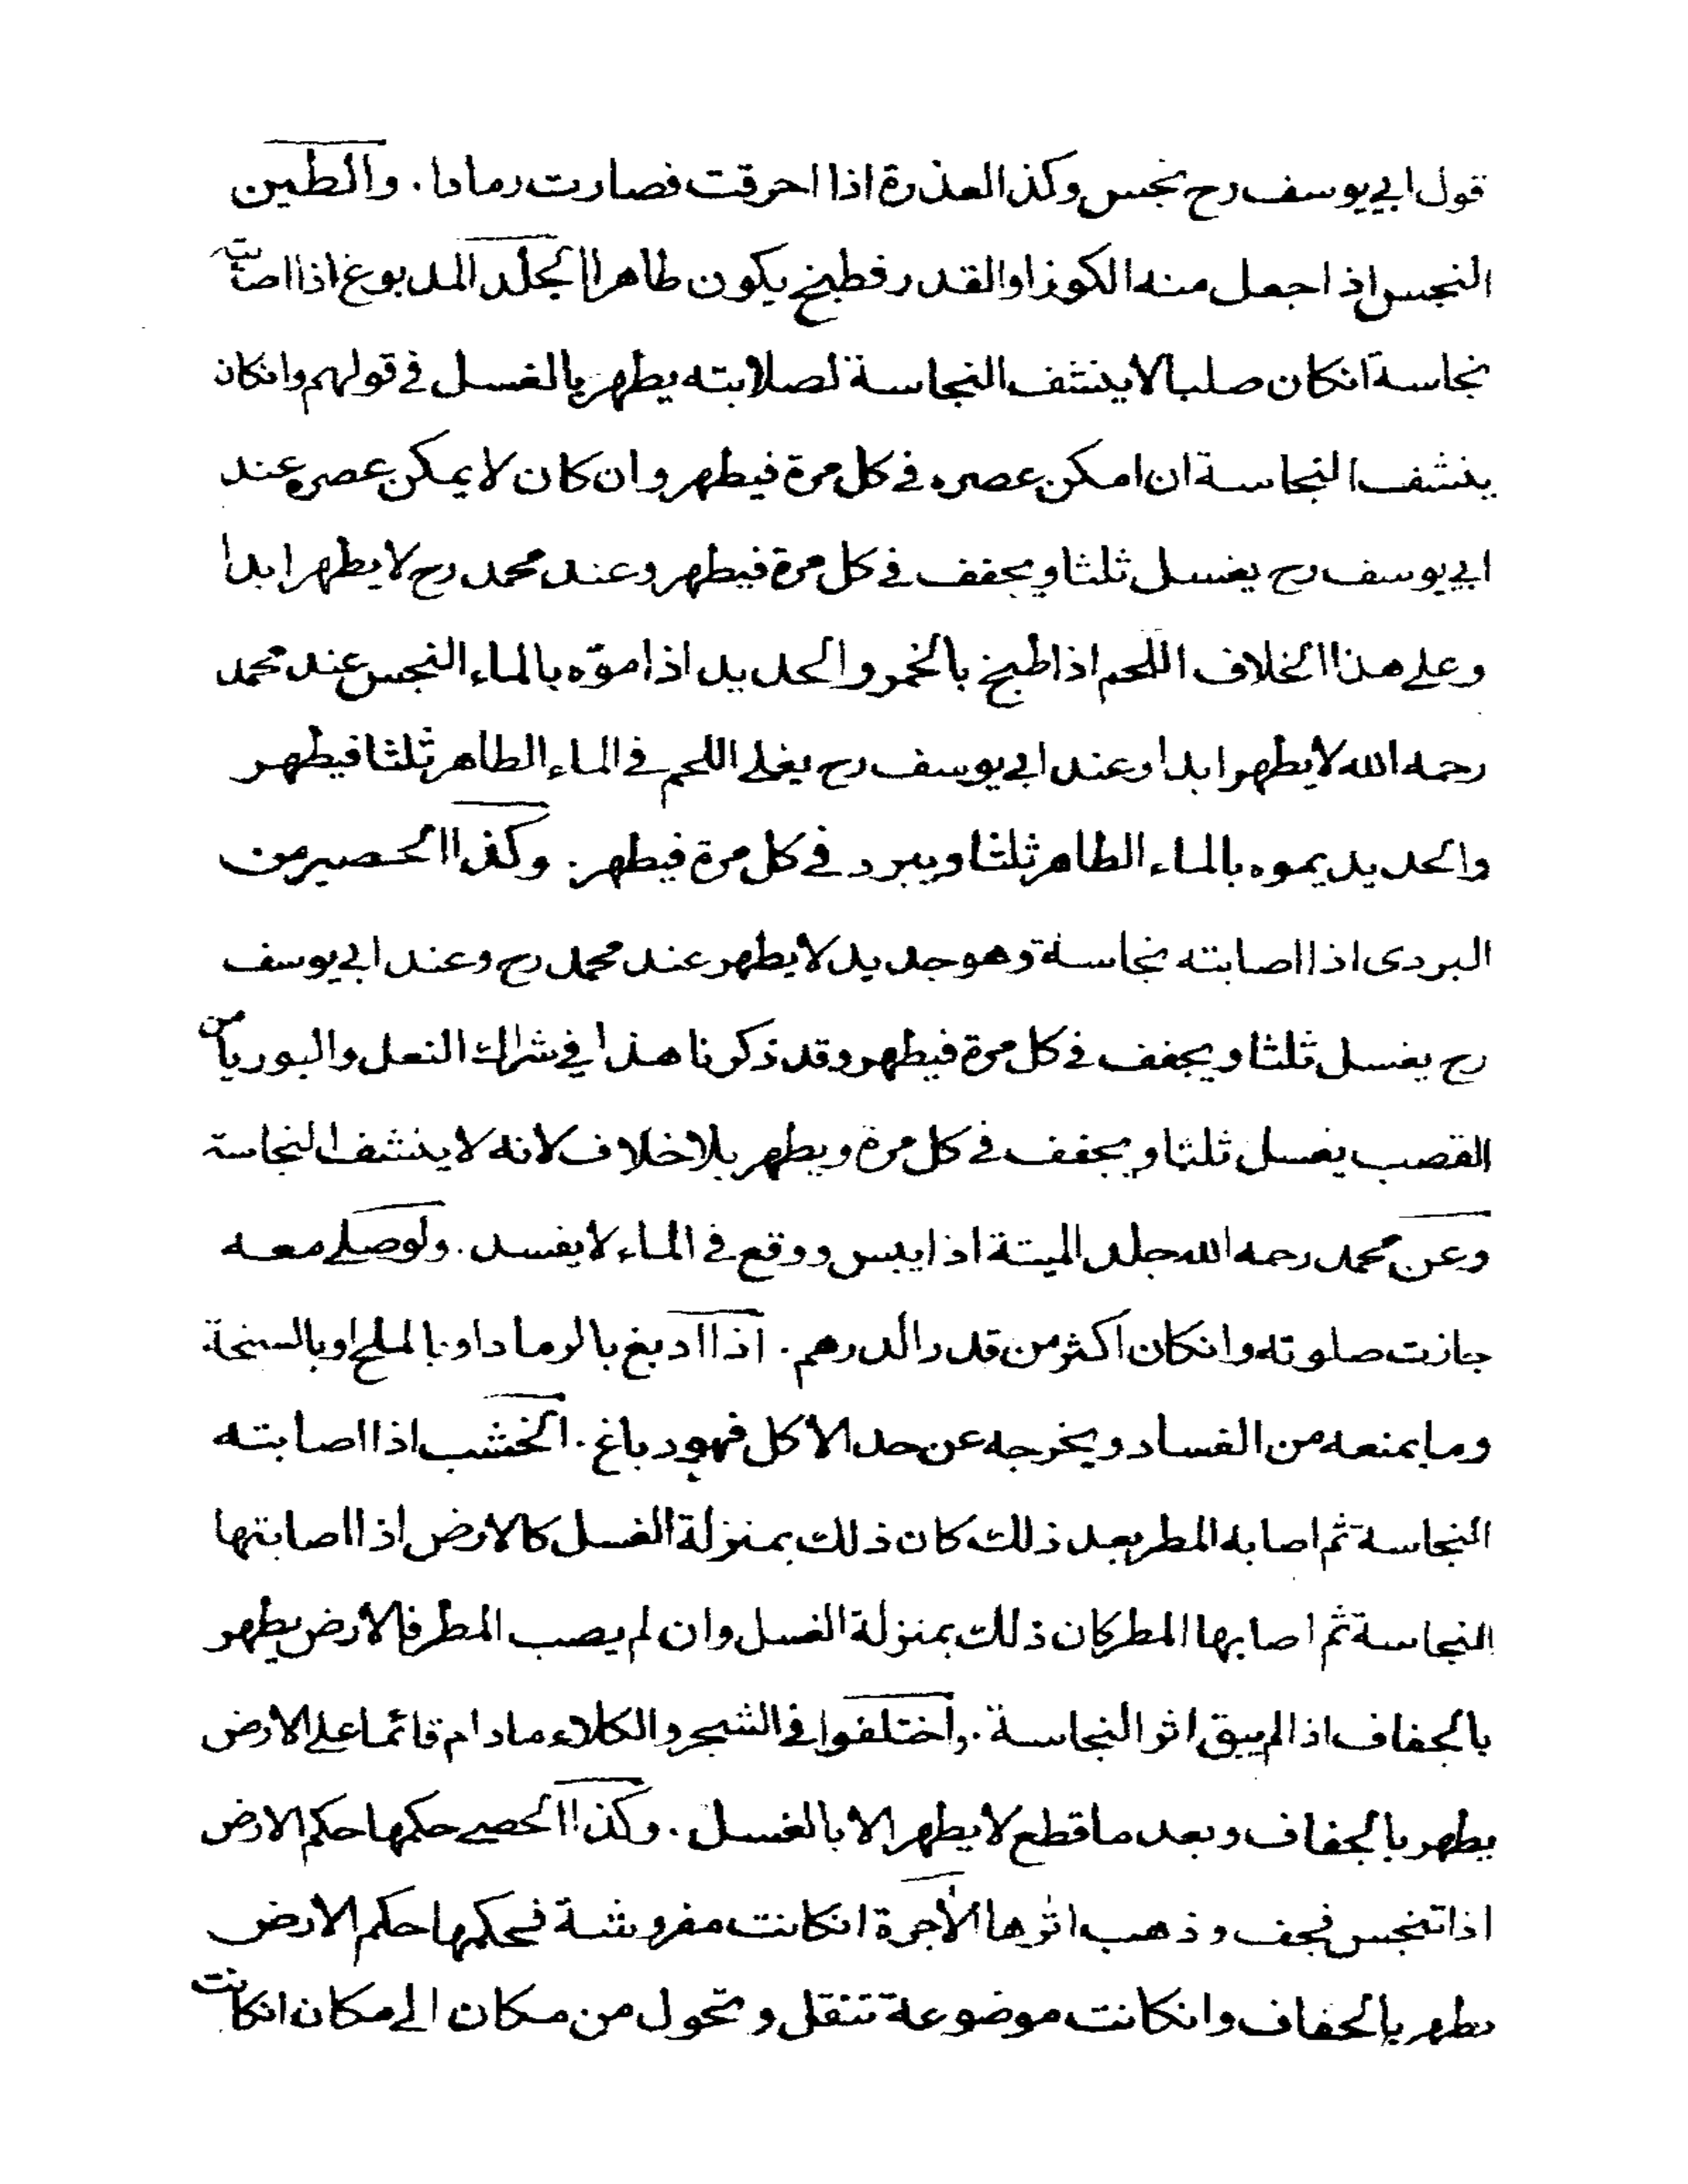 قول ابي يوسف رح نجس وكذا العذرة اذا احرقت فصارت رمادا . والطين
النجس اذا جعل منه الكوز او القدر فطبخ يكون طاهرا الجلد المدبوغ اذا اصابته
نجاسة انكان صلبا لا ينشف النجاسة لصلابته يطهر بالغسل في قولهم وانكان
ينشف النجاسة ان امكن عصره في كل مرة فيطهر وان كان لا يمكن عصره عند
ابي يوسف رح يغسل ثلثا ويجفف في كل مرة فيطهر وعند محمد رح لا يطهر ابدا
وعلى هذا الخلاف اللحم اذا طبخ بالخمر والحديد اذا موّه بالماء النجس عند محمد
رحمه الله لا يطهر ابدا وعند ابي يوسف رح يغلى اللحم في الماء الطاهر ثلثا فيطهر
والحديد يموه بالماء الطاهر ثلثا ويبرد في كل مرة فيطهر . وكذا الحصير من
البردى اذا اصابته نجاسة وهو جديد لا يطهر عند محمد رح وعند ابي يوسف
رح يغسل ثلثا ويجفف في كل مرة فيطهر وقد ذكرنا هذا في شراك النعل والبوريا من
القصب يغسل ثلثا ويجفف في كل مرة ويطهر بلا خلاف لانه لا ينشف النجاسة
وعن محمد رحمه الله جلد الميتة اذا يبس ووقع في الماء لا يفسد . ولو صلى معه
جازت صلوته وانكان اكثر من قدر الدرهم . اذا ادبغ بالرماد او بالملح او بالسبخة
وما يمنعه من الفساد ويخرجه عن حد الاكل فهو دباغ . الخشب اذا اصابته
النجاسة ثم اصابه المطر بعد ذلك كان ذلك بمنزلة الغسل كالارض اذا اصابتها
النجاسة ثم اصابها المطر كان ذلك بمنزلة الغسل وان لم يصب المطر فالارض يطهر
بالجفاف اذا لم يبق اثر النجاسة . واختلفوا في الشجر والكلاء مادام قائما على الارض
يطهر بالجفاف وبعد ما قطع لا يطهر الا بالغسل . وكذا الحصى حكمها حكم الارض
اذا تنجس فجف وذهب اثرها الآجرة انكانت مفروشة فحكمها حكم الارض
يطهر بالجفاف وانكانت موضوعة تنقل وتحول من مكان الى مكان انكانت